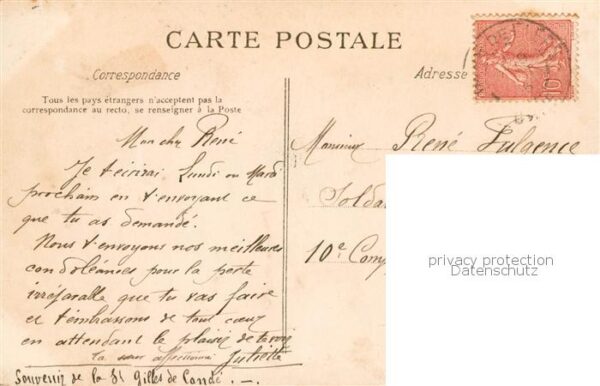 CARTE POSTALE
Correspondance
Adresse
Tous les pays étrangers n'acceptent pas la
correspondance au recto, se renseigner à la Poste
Mon cher René
Je t'écrirai Lundi ou Mardi
prochain en t'envoyant ce
que tu as demandé.
Nous t'envoyons nos meilleures
condoléances pour la perte
irréparable que tu vas faire
et t'embrassons de tout cœur
en attendant le plaisir de te voir
ta sœur affectionnée Juliette
Souvenir de la St Gilles de Condé. —.
Monsieur René Fulgence
Soldat
10e Comp
privacy protection
Datenschutz
10